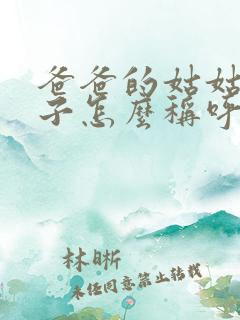 爸爸的姑姑
子怎麼稱呼
林晰
未任同意禁止转载